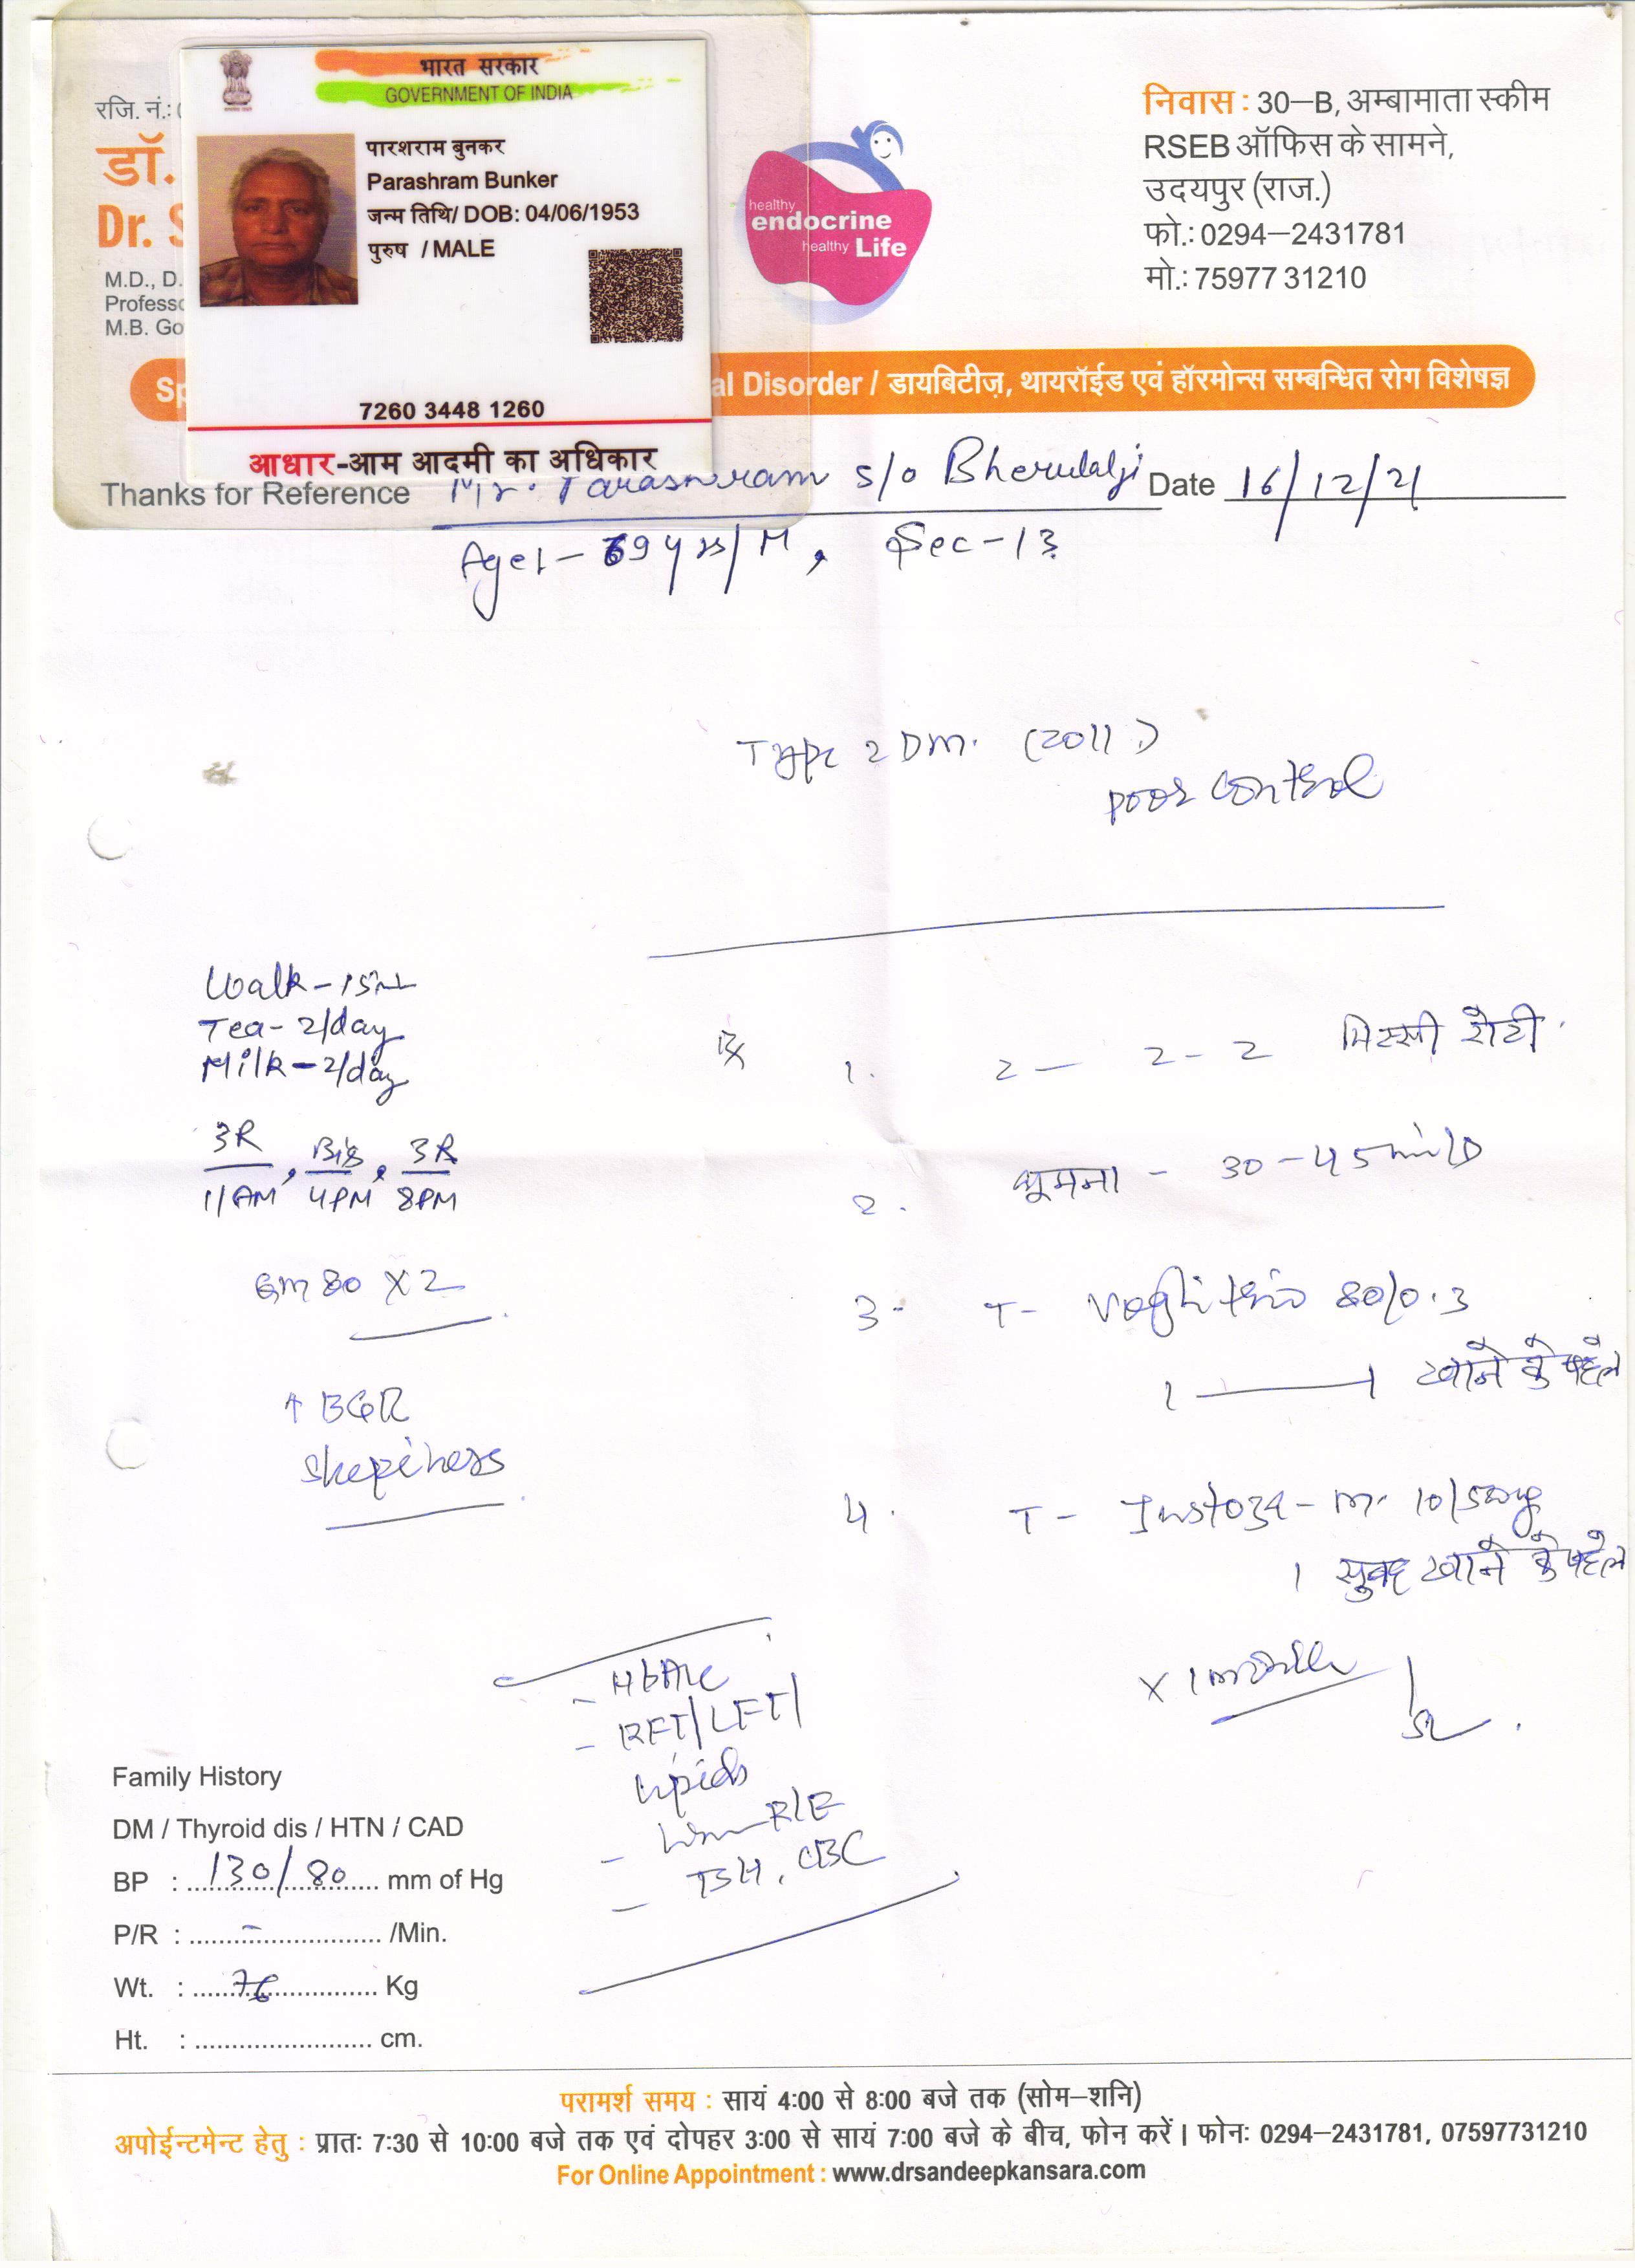 भारत सरकार
GOVERNMENT OF INDIA
पारशराम बुनकर
Parashram Bunker
जन्म तिथि/ DOB: 04/06/1953
पुरुष / MALE
7260 3448 1260
आधार-आम आदमी का अधिकार
रजि. नं.:
डॉ.
Dr. S
M.D., D.
M.B. Go
healthy
endocrine
healthy Life
निवास : 30–B, अम्बामाता स्कीम
RSEB ऑफिस के सामने,
उदयपुर (राज.)
फो.: 0294–2431781
मो.: 75977 31210
Sp
al Disorder / डायबिटीज़, थायरॉईड एवं हॉरमोन्स सम्बन्धित रोग विशेषज्ञ
Thanks for Reference Mr. Parasuram s/o Bherulalji Date 16/12/21
Age:- 69 yrs/M, Sec-13
Type 2 DM. (2011)
poor control
Walk-15
Tea- 2/day
Milk-2/day
3R, Bis, 3R
11AM 4PM 8PM
Gm 80 X 2
↑ BGR
Sleepiness
Rx
1. 2 — 2 - 2 मिस्सी रोटी
2. घूमना - 30-45 min/D
3- T- 80/0.3
1 — 1 खाने के पहले
4. T- 10/500mg
1 सुबह खाने के पहले
X 1 month
- HbA1c
- RFT/LFT/
Lipids
- R/E
- TSH, CBC
Family History
DM / Thyroid dis / HTN / CAD
BP : 130/80 mm of Hg
P/R : - /Min.
Wt. : 76 Kg
Ht. : cm.
परामर्श समय : सायं 4:00 से 8:00 बजे तक (सोम–शनि)
अपोईन्टमेन्ट हेतु : प्रातः 7:30 से 10:00 बजे तक एवं दोपहर 3:00 से सायं 7:00 बजे के बीच, फोन करें। फोनः 0294–2431781, 07597731210
For Online Appointment : www.drsandeepkansara.com